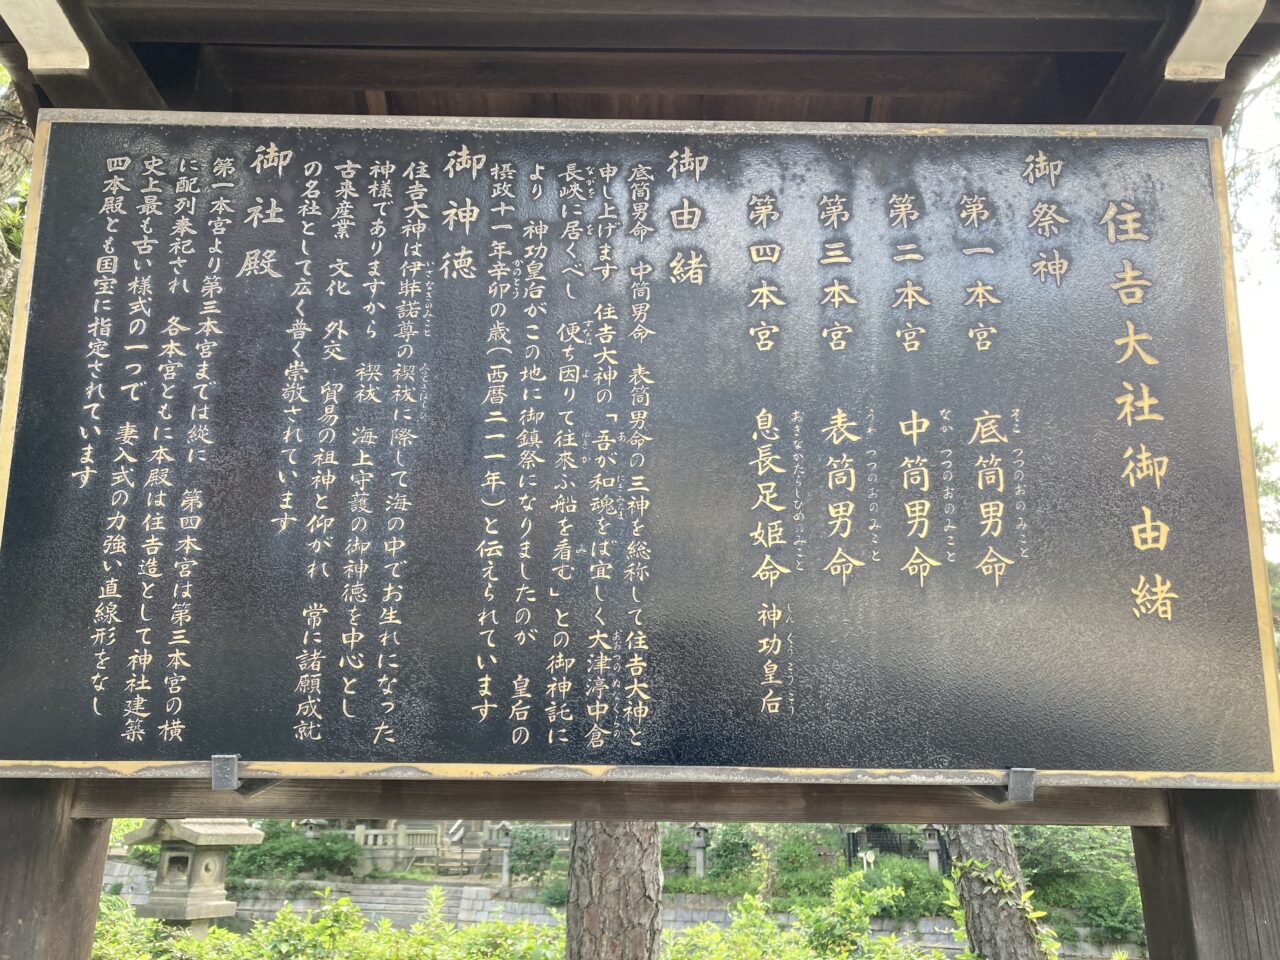 住吉大社御由緒
御祭神
第一本宮 底筒男命
そこつつのおのみこと
第二本宮 中筒男命
なかつつのおのみこと
第三本宮 表筒男命
うわつつのおのみこと
第四本宮 息長足姫命 神功皇后
おきながたらしひめのみこと じんぐうこうごう
御由緒
底筒男命 中筒男命 表筒男命の三神を総称して住吉大神と
申し上げます 住吉大神の「吾が和魂をば宜しく大津渟中倉
長峡に居くべし 便ち因りて往來ふ船を看む」との御神託に
より 神功皇后がこの地に御鎮祭になりましたのが 皇后の
摂政十一年辛卯の歳(西暦二一一年)と伝えられています
御神徳
住吉大神は伊弉諾尊の禊祓に際して海の中でお生れになった
神様でありますから 禊祓 海上守護の御神徳を中心とし
古来産業 文化 外交 貿易の祖神と仰がれ 常に諸願成就
の名社として広く普く崇敬されています
御社殿
第一本宮より第三本宮までは縦に 第四本宮は第三本宮の横
に配列奉祀され 各本宮ともに本殿は住吉造として神社建築
史上最も古い様式の一つで 妻入式の力強い直線形をなし
四本殿とも国宝に指定されています